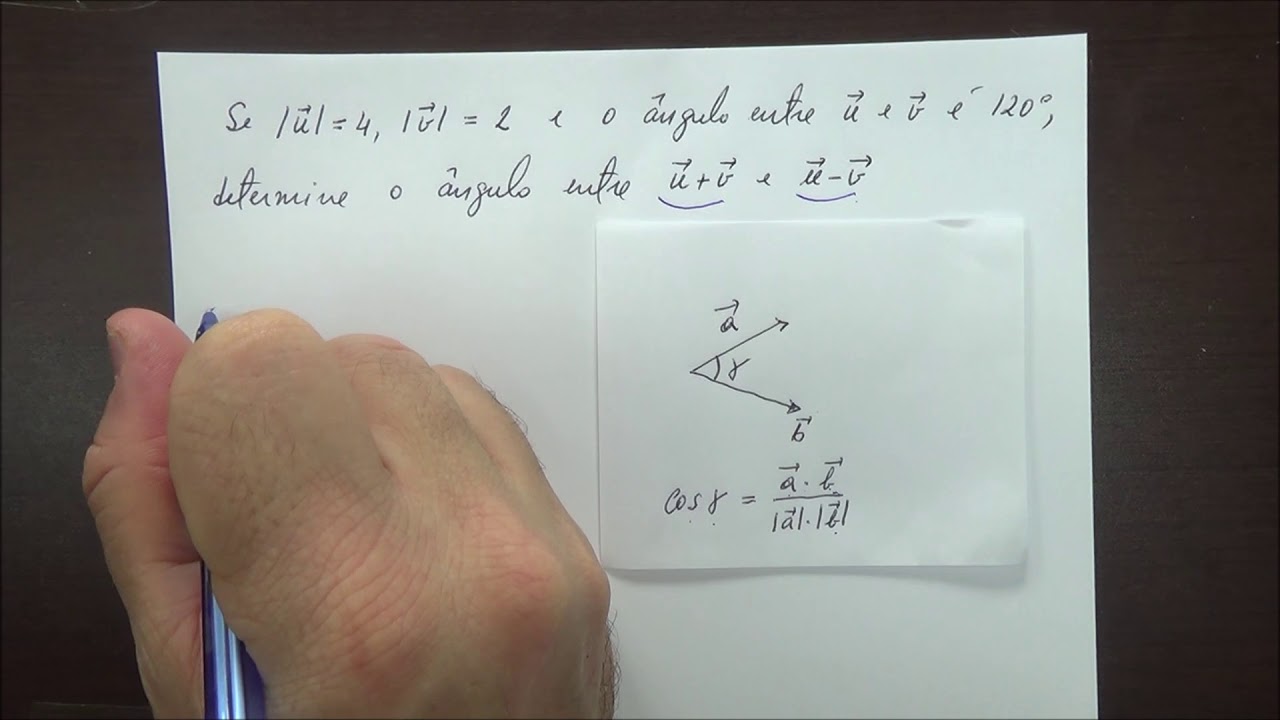 Se |u⃗| = 4, |v⃗| = 2 e o ângulo entre u⃗ e v⃗ é 120°,
determine o ângulo entre u⃗+v⃗ e u⃗-v⃗
a⃗
γ
b⃗
cos γ = a⃗ · b⃗ / |a⃗|·|b⃗|